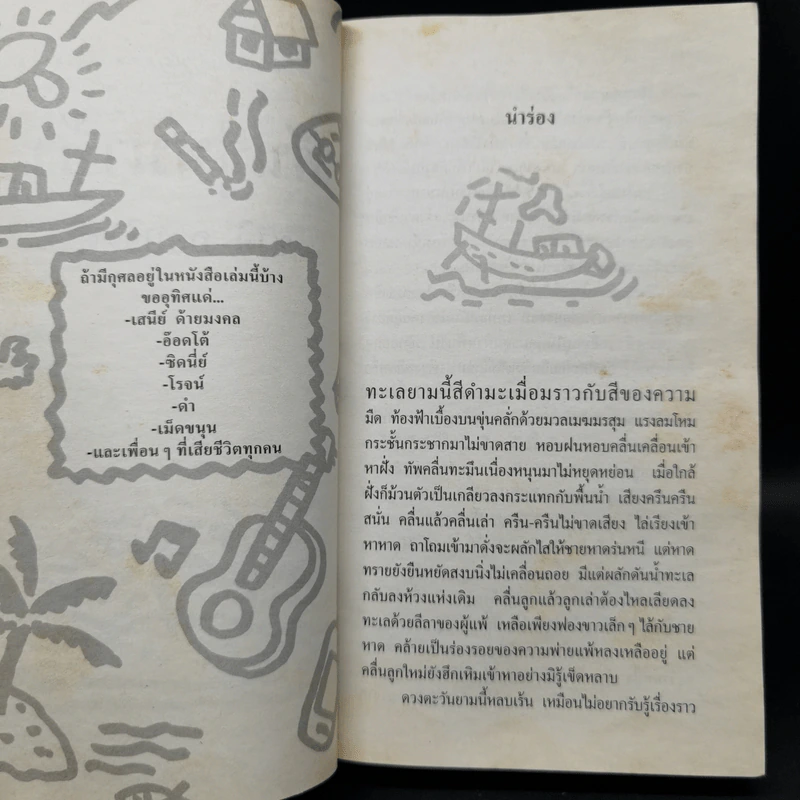 ถ้ามีกุศลอยู่ในหนังสือเล่มนี้บ้าง
ขออุทิศแด่...
-เสนีย์ ด้ายมงคล
-อ๊อดโต้
-ซิดนี่ย์
-โรจน์
-ดำ
-เม็ดขนุน
-และเพื่อนๆ ที่เสียชีวิตทุกคน
นำร่อง
ทะเลยามนี้สีดำมะเมื่อมราวกับสีของความ
มืด ท้องฟ้าเบื้องบนขุ่นคลั่กด้วยมวลเมฆมรสุม แรงลมโหม
กระชั้นกระชากมาไม่ขาดสาย หอบฝนหอบคลื่นเคลื่อนเข้า
หาฝั่ง ทัพคลื่นทะมึนเนื่องหนุนมาไม่หยุดหย่อน เมื่อใกล้
ฝั่งก็ม้วนตัวเป็นเกลียวลงกระแทกกับพื้นน้ำ เสียงครืนครืน
สนั่น คลื่นแล้วคลื่นเล่า ครืน-ครืนไม่ขาดเสียง ไล่เรียงเข้า
หาหาด ถาโถมเข้ามาดั่งจะผลักไสให้ชายหาดร่นหนี แต่หาด
ทรายยังยืนหยัดสงบนิ่งไม่เคลื่อนถอย มีแต่ผลักดันน้ำทะเล
กลับลงห้วงแห่งเดิม คลื่นลูกแล้วลูกเล่าต้องไหลเลียดลง
ทะเลด้วยลีลาของผู้แพ้ เหลือเพียงฟองขาวเล็กๆ ไล้กับชาย
หาด คล้ายเป็นร่องรอยของความพ่ายแพ้หลงเหลืออยู่ แต่
คลื่นลูกใหม่ยังฮึกเหิมเข้าหาอย่างมิรู้เข็ดหลาบ
ดวงตะวันยามนี้หลบเร้น เหมือนไม่อยากรับรู้เรื่องราว